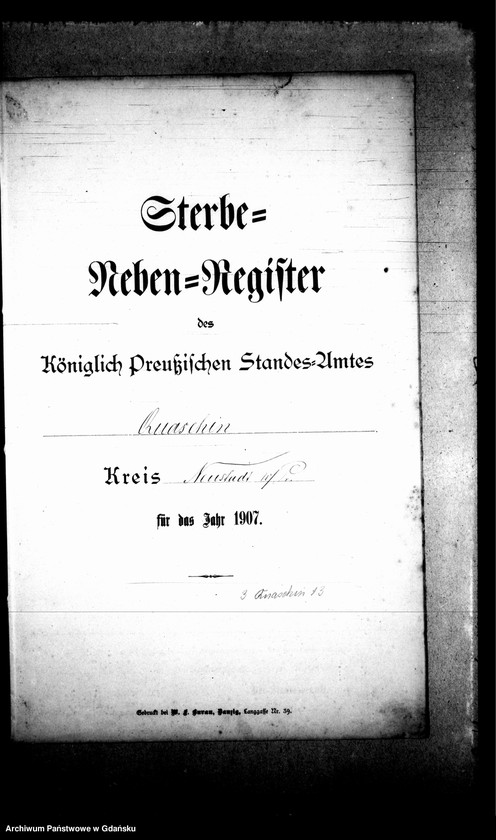 Sterbe=
Neben=Register
des
Königlich Preußischen Standes=Amtes
Quaschin
Kreis Neustadt
für das Jahr 1907.
3 Quaschin 13
Gedruckt bei W. F. Burau, Danzig, Langgasse Nr. 39.
Archiwum Państwowe w Gdańsku